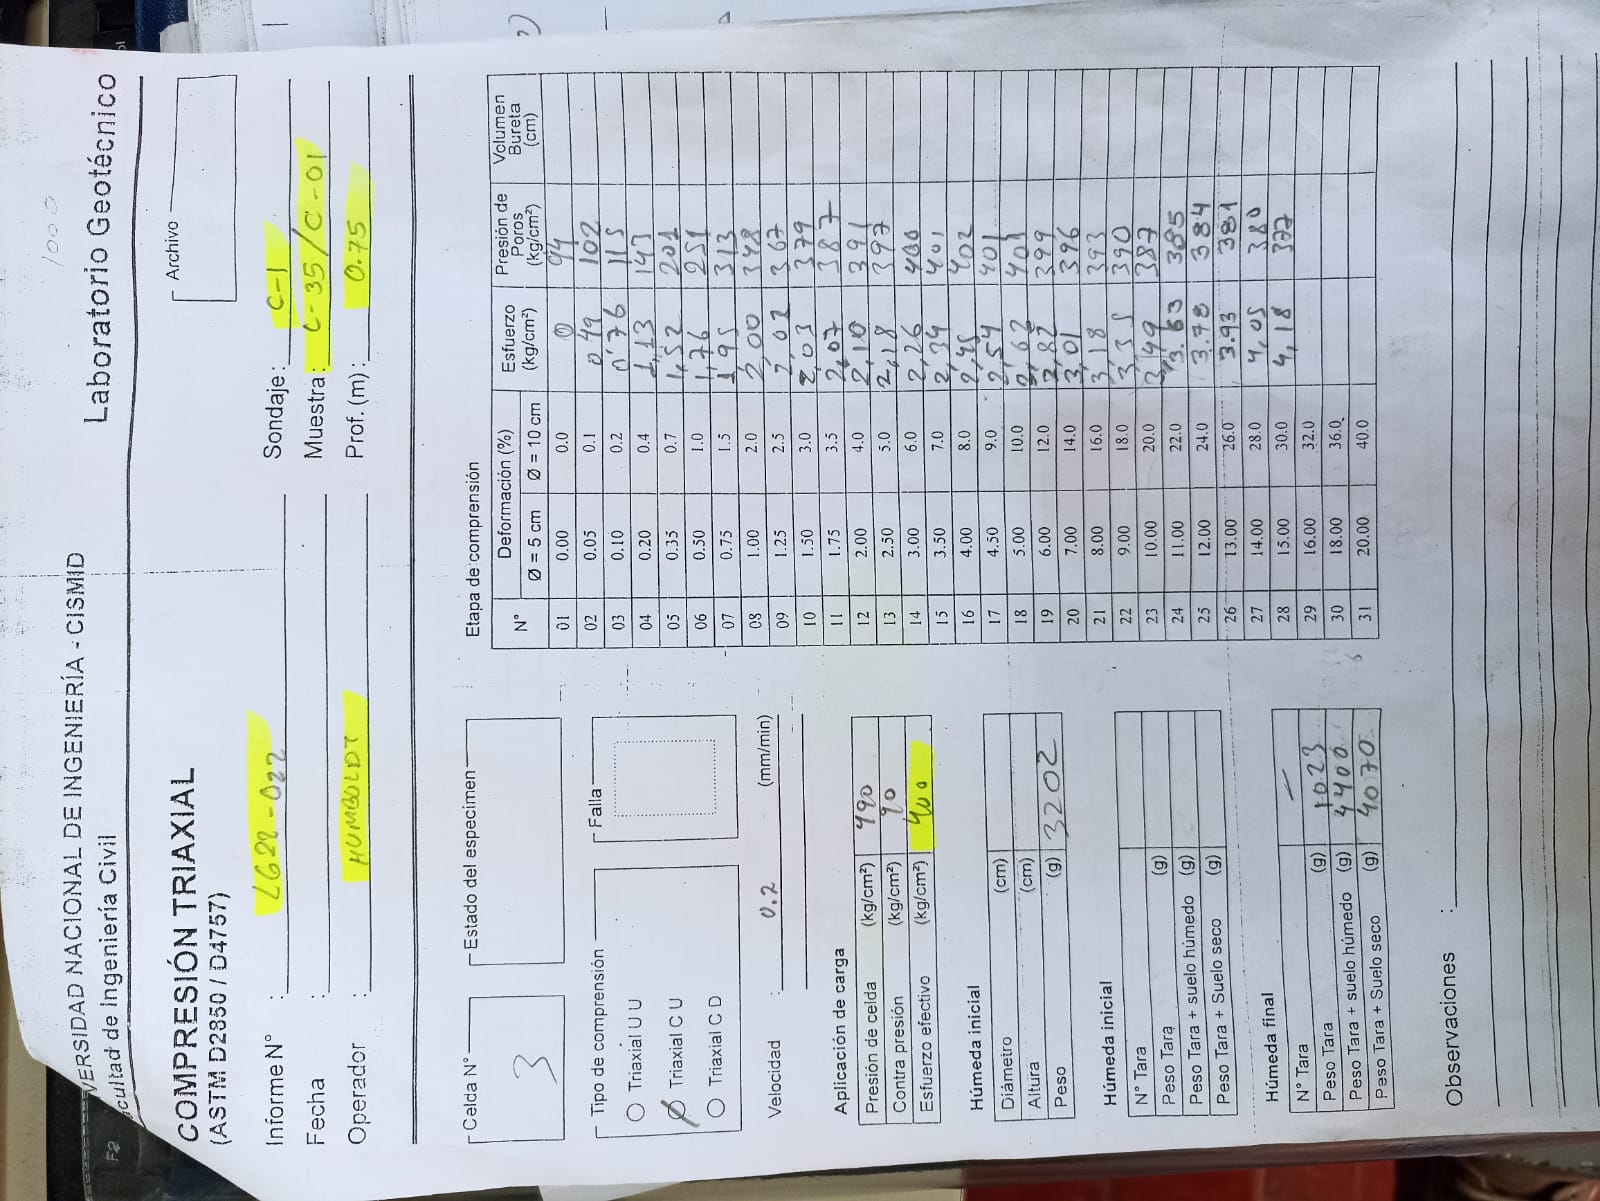 1000
VERSIDAD NACIONAL DE INGENIERÍA - CISMID
cultad de Ingeniería Civil
Laboratorio Geotécnico
COMPRESIÓN TRIAXIAL
(ASTM D2850 / D4757)
Archivo
Informe N° : LG22-022
Sondaje: C-1
Fecha :
Muestra: C-35/C-01
Operador : HUMBOLDT
Prof. (m) : 0.75
Celda N°
3
Estado del especimen
Tipo de comprensión
Triaxial U U
Triaxial C U
Triaxial C D
Falla
Velocidad : 0.2 (mm/min)
Aplicación de carga
Presión de celda (kg/cm²) 490
Contra presión (kg/cm²) 90
Esfuerzo efectivo (kg/cm²) 400
Húmeda inicial
Diámetro (cm)
Altura (cm)
Peso (g) 3202
Húmeda inicial
N° Tara
Peso Tara (g)
Peso Tara + suelo húmedo (g)
Peso Tara + Suelo seco (g)
Húmeda final
N° Tara —
Peso Tara (g) 1023
Peso Tara + suelo húmedo (g) 4400
Peso Tara + Suelo seco (g) 4070
Etapa de comprensión
N° Deformación (%) Esfuerzo (kg/cm²) Presión de Poros (kg/cm²) Volumen Bureta (cm)
Ø = 5 cm Ø = 10 cm
01 0.00 0.0 0 94
02 0.05 0.1 0,49 102
03 0.10 0.2 0'76 115
04 0.20 0.4 1,13 143
05 0.35 0.7 1,52 201
06 0.50 1.0 1,76 251
07 0.75 1.5 1,95 313
08 1.00 2.0 2,00 348
09 1.25 2.5 2,02 367
10 1.50 3.0 2,03 379
11 1.75 3.5 2,07 387
12 2.00 4.0 2,10 391
13 2.50 5.0 2,18 397
14 3.00 6.0 2,26 400
15 3.50 7.0 2,34 401
16 4.00 8.0 2,45 402
17 4.50 9.0 2,54 401
18 5.00 10.0 2,62 401
19 6.00 12.0 2,82 399
20 7.00 14.0 3,01 396
21 8.00 16.0 3,18 393
22 9.00 18.0 3,35 390
23 10.00 20.0 3,49 387
24 11.00 22.0 3.63 385
25 12.00 24.0 3.78 384
26 13.00 26.0 3.93 381
27 14.00 28.0 4,05 380
28 15.00 30.0 4,18 377
29 16.00 32.0
30 18.00 36.0
31 20.00 40.0
Observaciones :